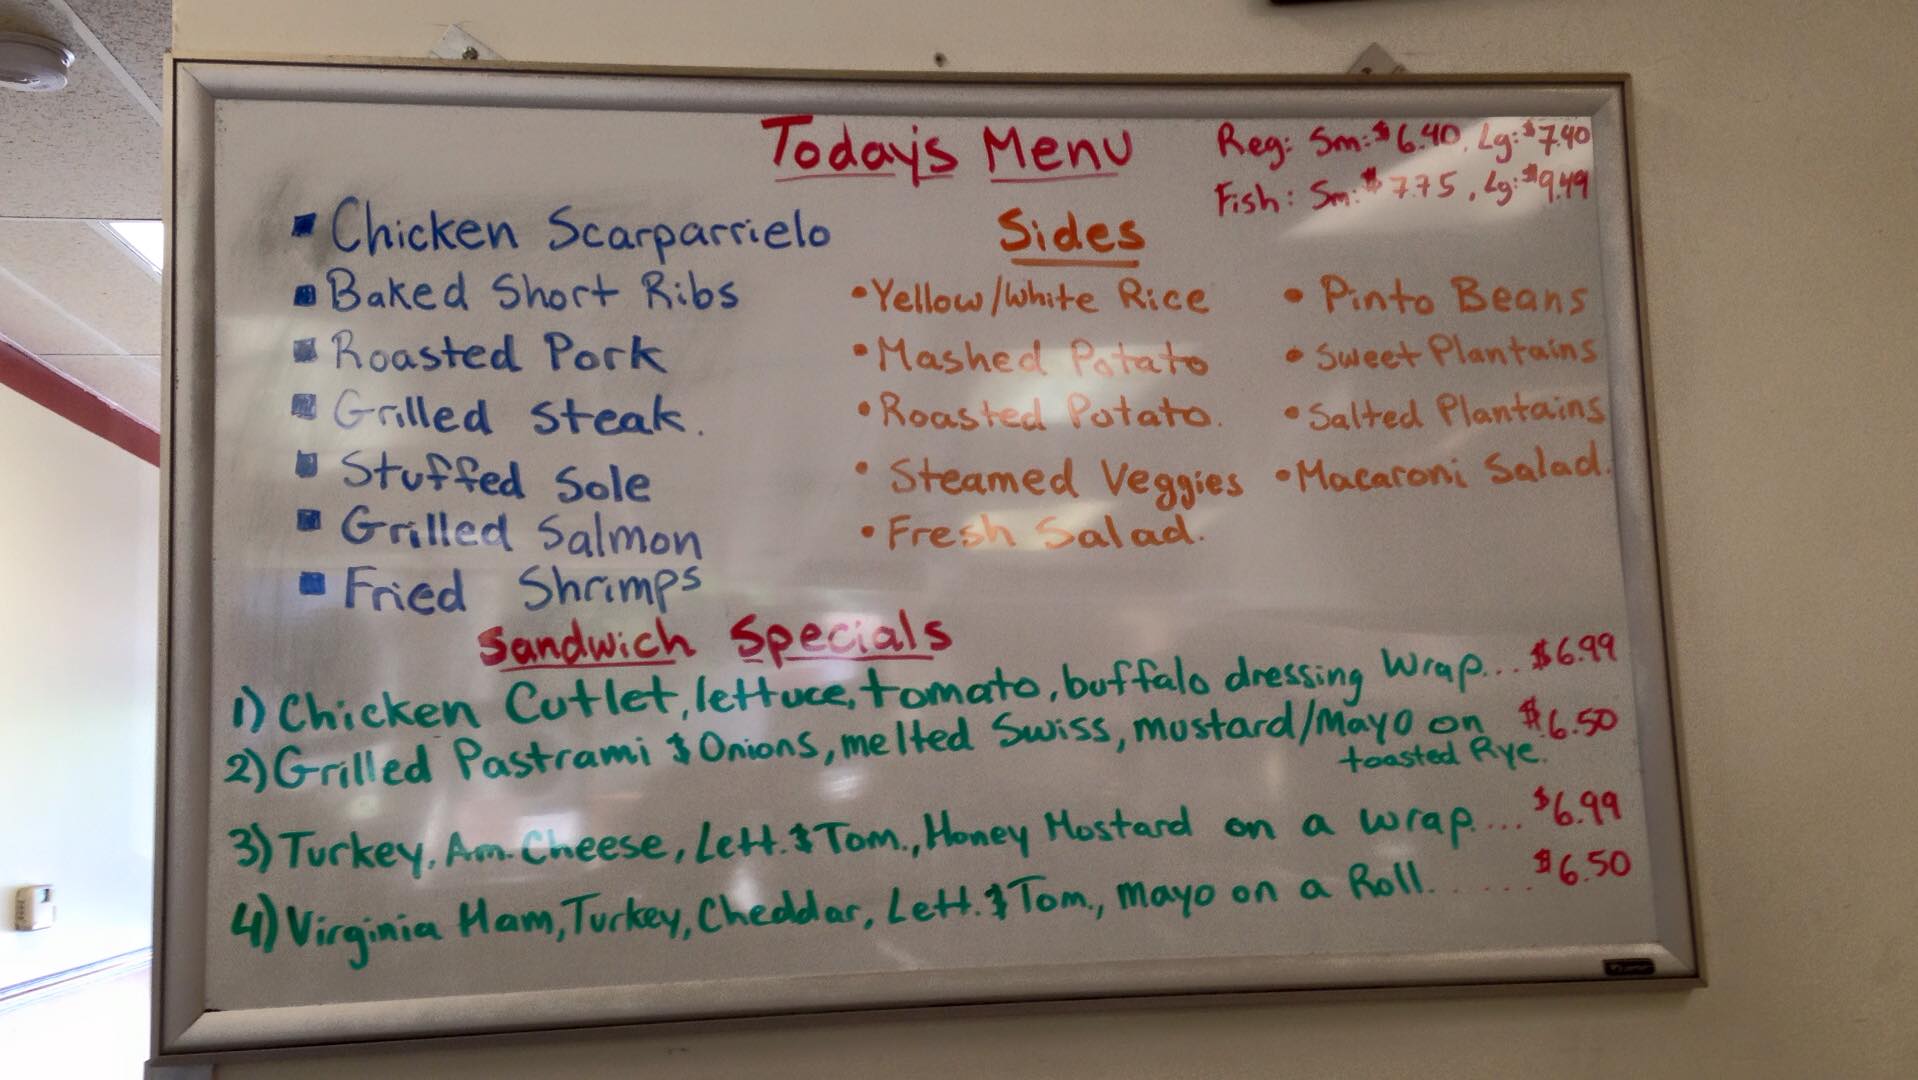 Today's Menu
Reg: Sm: $6.40, Lg: $7.40
Fish: Sm: $7.75, Lg: $9.49
Chicken Scarparrielo
Baked Short Ribs
Roasted Pork
Grilled Steak.
Stuffed Sole
Grilled Salmon
Fried Shrimps
Sides
• Yellow/White Rice
• Mashed Potato
• Roasted Potato.
• Steamed Veggies
• Fresh Salad.
• Pinto Beans
• Sweet Plantains
• Salted Plantains
• Macaroni Salad.
Sandwich Specials
1) Chicken Cutlet, lettuce, tomato, buffalo dressing Wrap... $6.99
2) Grilled Pastrami & Onions, melted Swiss, mustard/Mayo on $6.50
toasted Rye.
3) Turkey, Am. Cheese, Lett. & Tom., Honey Mostard on a wrap.... $6.99
4) Virginia Ham, Turkey, Cheddar, Lett. & Tom., Mayo on a Roll....... $6.50